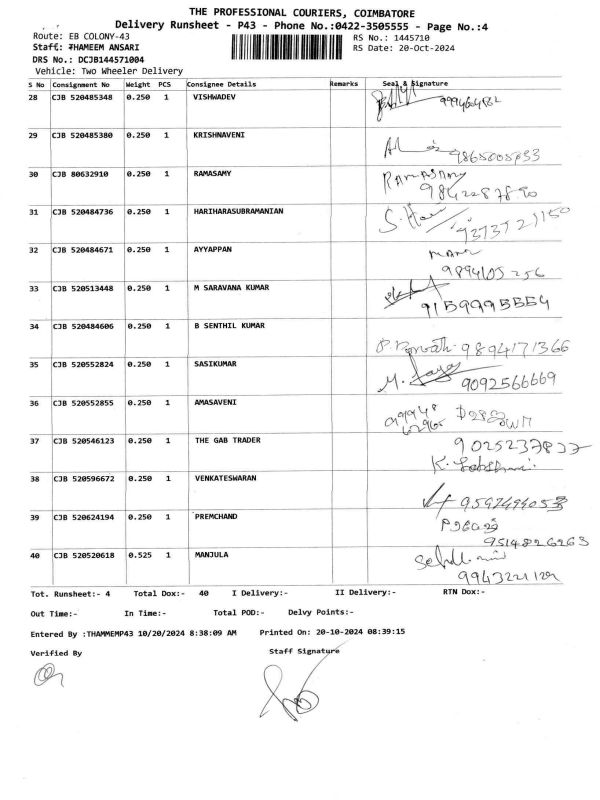 THE PROFESSIONAL COURIERS, COIMBATORE
Delivery Runsheet - P43 - Phone No.:0422-3505555 - Page No.:4
Route: EB COLONY-43
RS No.: 1445710
Staff: THAMEEM ANSARI
RS Date: 20-Oct-2024
DRS No.: DCJB144571004
Vehicle: Two Wheeler Delivery
S No Consignment No Weight PCS Consignee Details Remarks Seal & Signature
28 CJB 520485348 0.250 1 VISHWADEV
29 CJB 520485380 0.250 1 KRISHNAVENI
30 CJB 80632910 0.250 1 RAMASAMY RAMASAMY
31 CJB 520484736 0.250 1 HARIHARASUBRAMANIAN S. Hari
32 CJB 520484671 0.250 1 AYYAPPAN
9894105256
33 CJB 520513448 0.250 1 M SARAVANA KUMAR
9159995554
34 CJB 520484606 0.250 1 B SENTHIL KUMAR
9894171366
35 CJB 520552824 0.250 1 SASIKUMAR
9092566669
36 CJB 520552855 0.250 1 AMASAVENI
37 CJB 520546123 0.250 1 THE GAB TRADER
38 CJB 520596672 0.250 1 VENKATESWARAN
39 CJB 520624194 0.250 1 PREMCHAND
9514826263
40 CJB 520520618 0.525 1 MANJULA
Tot. Runsheet:- 4 Total Dox:- 40 I Delivery:- II Delivery:- RTN Dox:-
Out Time:- In Time:- Total POD:- Delvy Points:-
Entered By :THAMMEMP43 10/20/2024 8:38:09 AM Printed On: 20-10-2024 08:39:15
Verified By Staff Signature